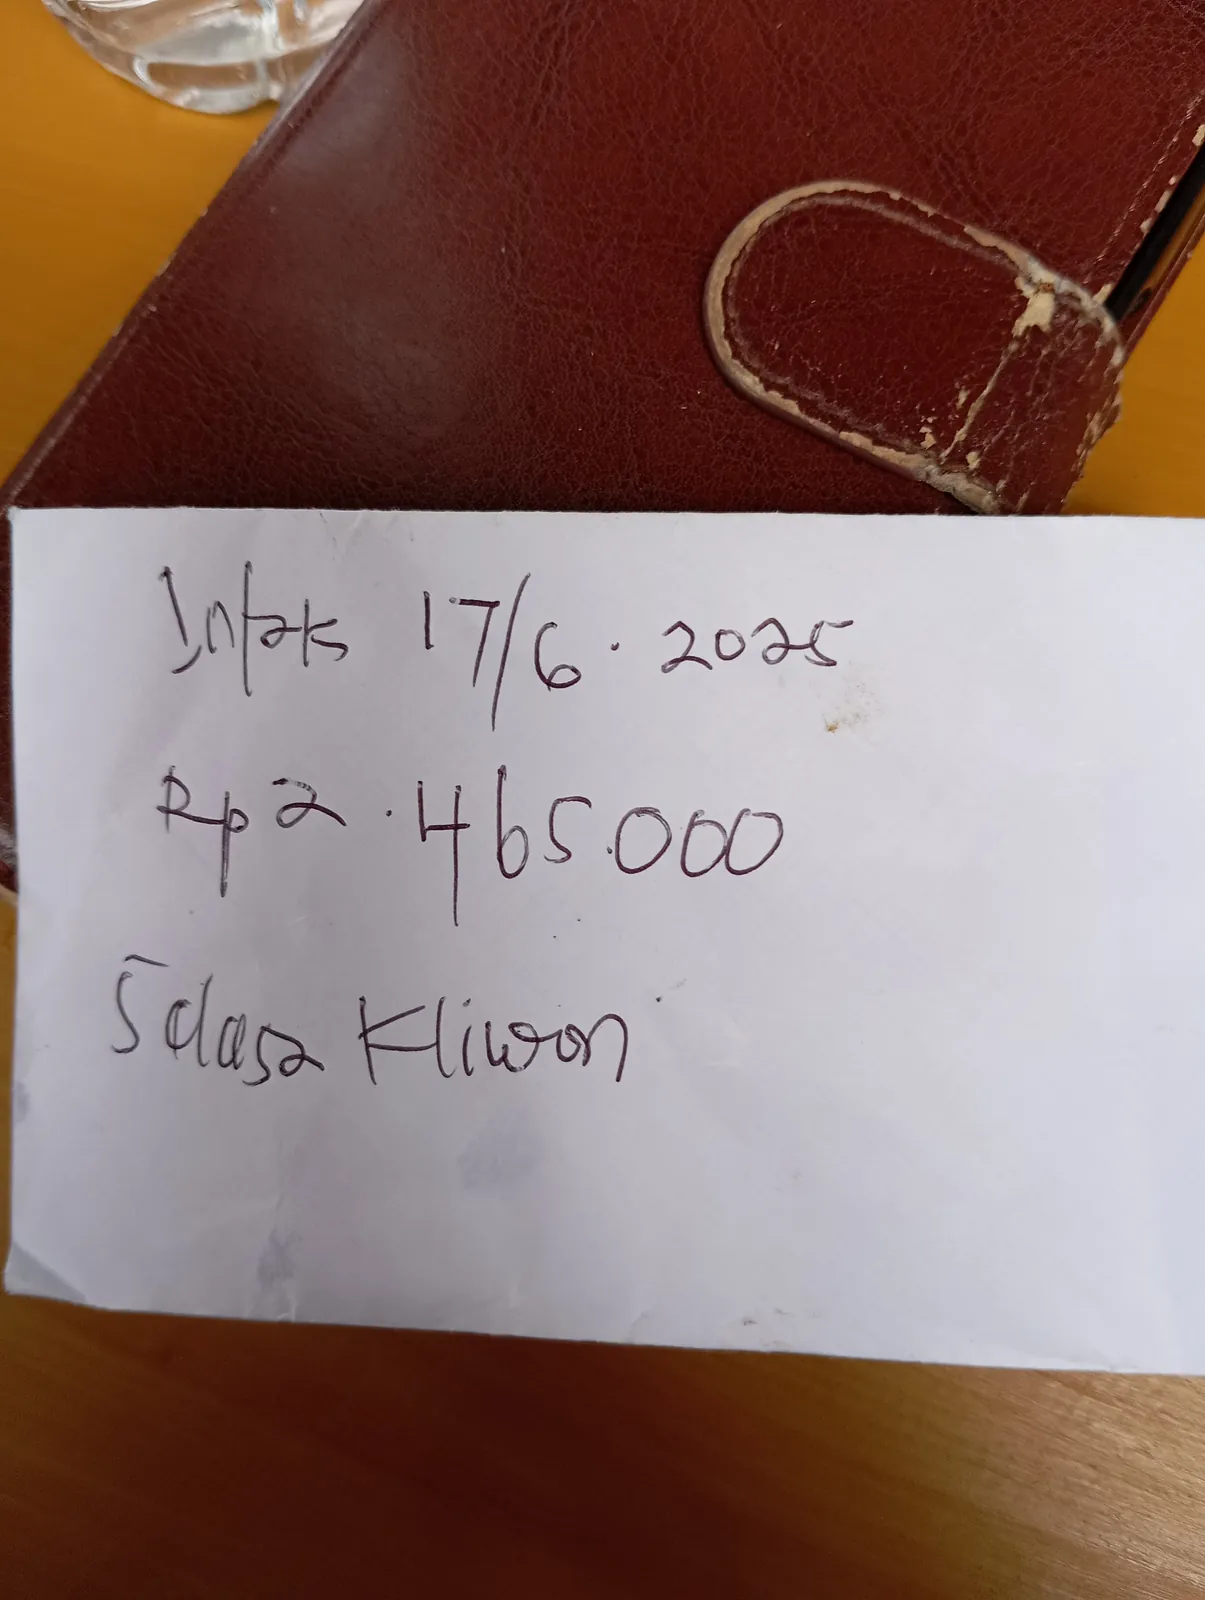 Infak 17/6.2025
Rp 2.465.000
Selasa Kliwon